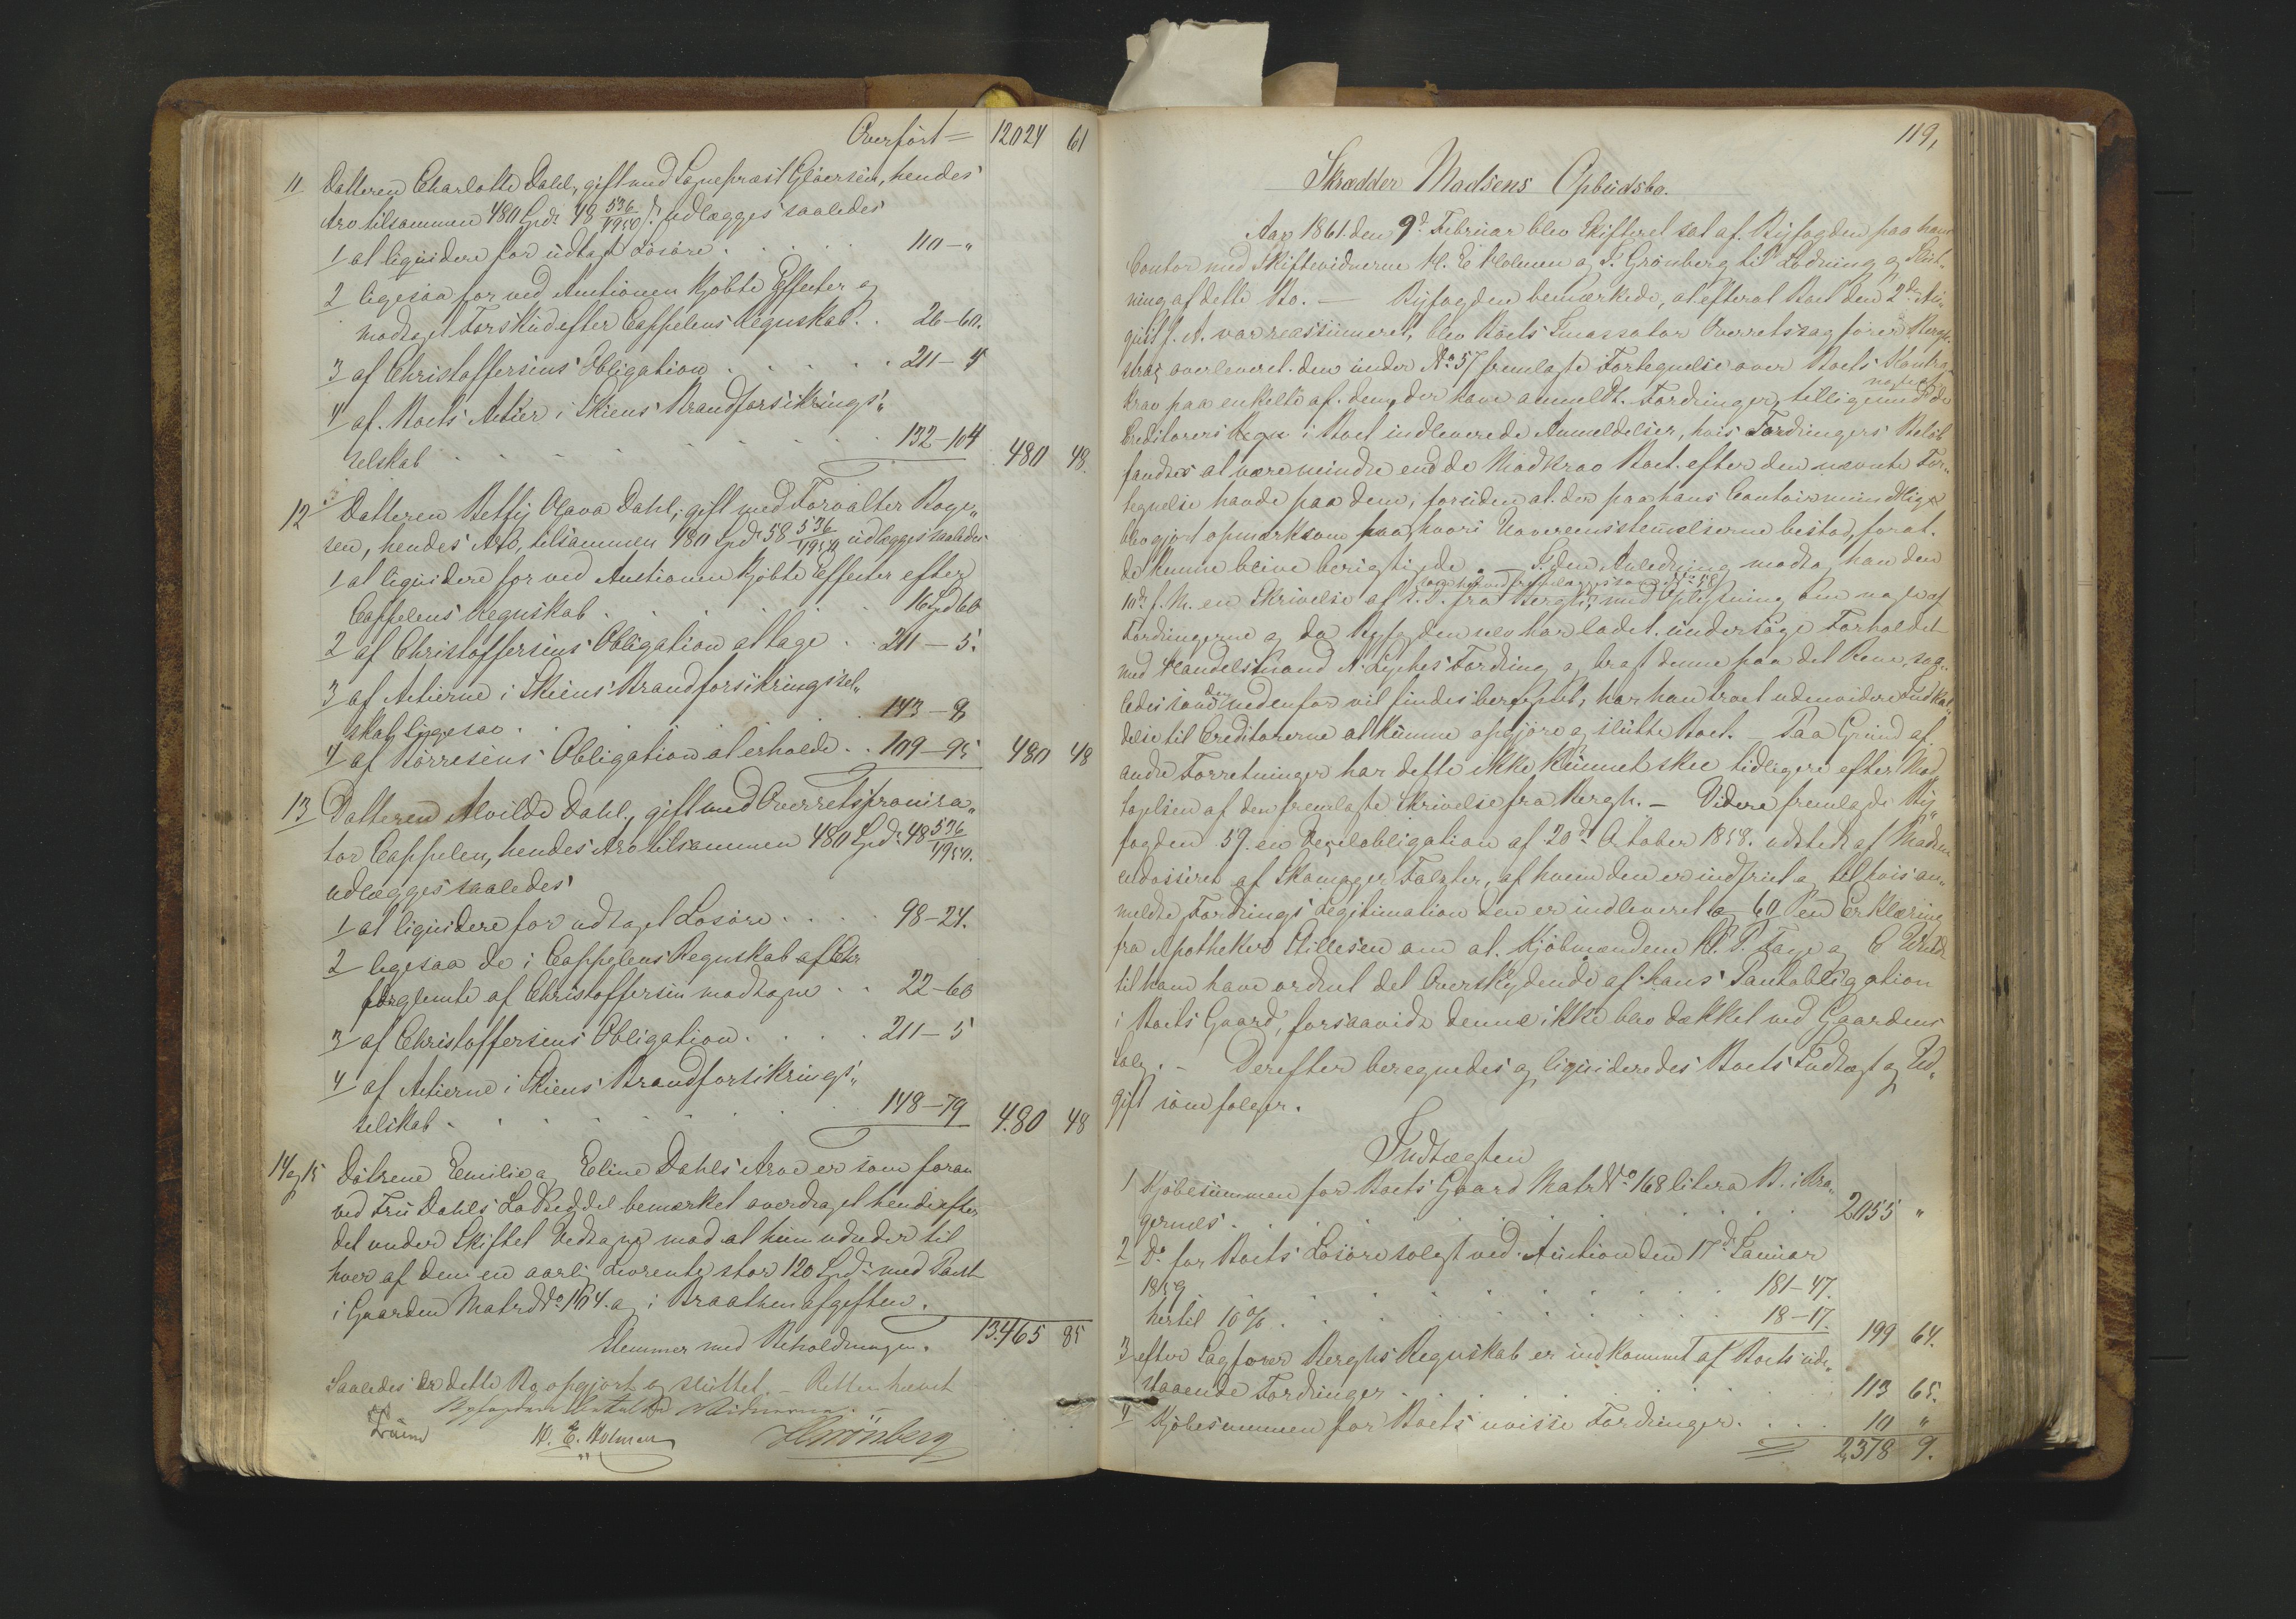 Overført = 12024 61
11 Datteren Charlotte Dahl, gift med Sognepræst Gløersen, hendes
Arv tilsammen 480 Spd. 48 536/1950 s. udlægges saaledes
1 at liquidere for udtaget Løsøre . . . . 110 – „
2 ligesaa for ved Auctionen kjøbte Effecter og
modtaget Forskud efter Cappelens Regnskab . . 26 – 60.
3 af Christoffersens Obligation . . . . . 211 – 4
4 af Boets Actier i Skiens Brandforsikrings„
selskab . . . . . . 132 – 104 480 48.
12 Datteren Betsy Olava Dahl, gift med Forvalter Boye„
sen, hendes Arv, tilsammen 480 Spd. 58 536/1950 udlægges saaledes
1 at liquidere for ved Auctionen kjøbte Effecter efter
Cappelens Regnskab . . . . . 16 Spd 60
2 af Christoffersens Obligation at tage . . 211 – 5.
3 af Actierne i Skiens Brandforsikringssel„
skab ligesaa . . . . . . 143 – 8
4 af Börresens Obligation at erholde . . 109 – 95 480 48
13 Datteren Alvilde Dahl, gift med Overretsprocura„
tor Cappelen, hendes Arv tilsammen 480 Spd. 48 536/1950.
udlægges saaledes
1 at liquidere for udtaget Løsøre . . . . 98 – 24.
2 ligesaa de i Cappelens Regnskab af Chr
forglemte af Christoffersen modtagne . . 22 – 60
3 af Christoffersens Obligation . . . . 211 – 5
4 af Actierne i Skiens Brandforsikrings„
selskab . . . . . . 148 – 79 480 48
14 og 15 Døtrene Emilie og Eline Dahls Arv er som foran
ved Fru Dahls Lodseddel bemærket overdraget hende efter
det under Skiftet Vedtagne mod at hun udreder til
hver af dem en aarlig Livrente stor 120 Spd. med Pant
i Gaarden Matr No 164. og i Braathenafgiften.
Stemmer med Beholdningen. 13465 85
Saaledes er dette Bo opgjort og sluttet. – Retten hævet
H. E. Holmen HGrönberg
119,
Skrædder Madsens Opbudsbo.
Aar 1861. den 9de Februar blev Skifteret sat af Byfogden paa hans
Contor med Skiftevidnerne H. E. Holmen og H. Grönberg til Lodning og Slut„
ning af dette Bo. – Byfogden bemærkede, at efterat Boet den 2den Au„
gust f. A. var reassumeret, blev Boets Incassator Overretssagfører Bergh
strax overleveret den under No 57 fremlagte Fortegnelse over Boets Contra
krav paa enkelte af dem, der have anmeldt Fordringer, tilligemed de
Creditorers i Boet indleverede Anmeldelser, hvis Fordringers Beløb
fandtes at være mindre end de Modkrav Boet efter den nævnte For„
tegnelse havde paa dem, foruden at der paa hans Contoir mundtligen
blev gjort opmærksom paa, hvori Uoverensstemmelserne bestod, forat
de kunne blive berigtigede. – I den Anledning modtog han den
10de f. M. en Skrivelse af fra Bergh, med Oplysning om nogle af
Fordringerne og da Byfogden selv har ladet undersøge Forholdet
med Handelsmand A. Lyches Fordring og bragt denne paa det Rene, saa„
ledes som den nedenfor vil findes beregnet, har han troet uden videre Indkal„
delse til Creditorerne at kunne opgjøre og slutte Boet. – Paa Grund af
andre Forretninger har dette ikke kunnet skee tidligere efter Mod„
tagelsen af den fremlagte Skrivelse fra Bergh. – Videre fremlagde By„
fogden 59. en Vexelobligation af 20de October 1858. udstedt af Madsen
endosseret af Skomager Falster, af hvem den er indfriet og til hvis an„
meldte Fordrings Legitimation den er indleveret og 60 en Erklæring
fra Apotheker Gillesen om at Kjøbmændene H. P. Faye og C
til ham have ordnet det Overskydende af hans Pantobligation
i Boets Gaard, forsaavidt denne ikke blev dækket ved Gaardens
Salg. – Derefter beregnedes og liquideredes Boets Indtægt og Ud„
gift som følger.
Indtægten
1 Kjøbesummen for Boets Gaard Matr No 168 litera B. i Kra„
gernæs . . . . . . . . 2055 „
2 Do for Boets Løsøre solgt ved Auction den 17de Januar
1859 . . . . . . 181 – 47.
hertil 10 % . . . . . . 18 – 17. 199 64.
3 efter Sagfører Berghs Regnskab er indkommet af Boets ude„
staaende Fordringer . . . . . . 113 65.
4 Kjøbesummen for Boets uvisse Fordringer . . . 10 „
2,378 9.